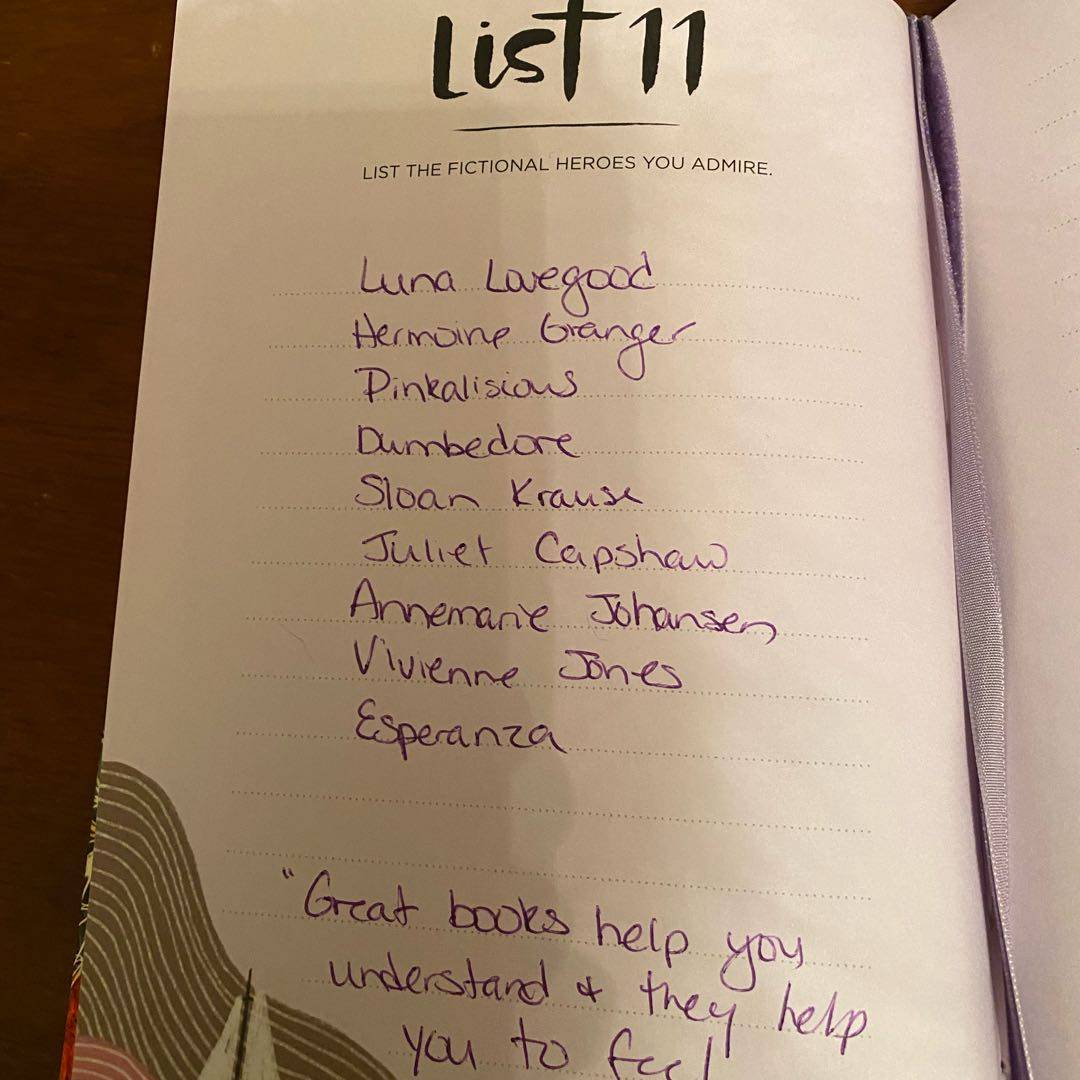 List 11
LIST THE FICTIONAL HEROES YOU ADMIRE.
Luna Lovegood
Hermoine Granger
Pinkalisious
Dumbedore
Sloan Krause
Juliet Capshaw
Annemarie Johansen
Vivienne Jones
Esperanza
"Great books help you
understand & they help
you to feel